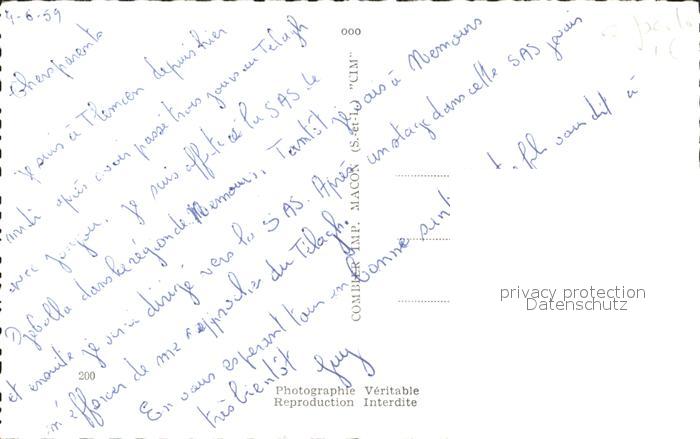 9-6-59
Chers parents
Je suis à Tlemcen depuis hier
midi après avoir passé trois jours au Telagh
avec Jacques. Je suis affecté à la SAS de
Djeballa dans la région de Nemours. Tantôt je vais à Nemours
et ensuite je serai dirigé vers la SAS. Après un stage dans cette SAS je vais
m'efforcer de me rapprocher du Télagh.
En vous espérant tous en bonne santé
vous dit à
très bientôt
Guy
000
COMBIER IMP. MACON (S.-et-L.) "CIM"
200
Photographie Véritable
Reproduction Interdite
privacy protection
Datenschutz